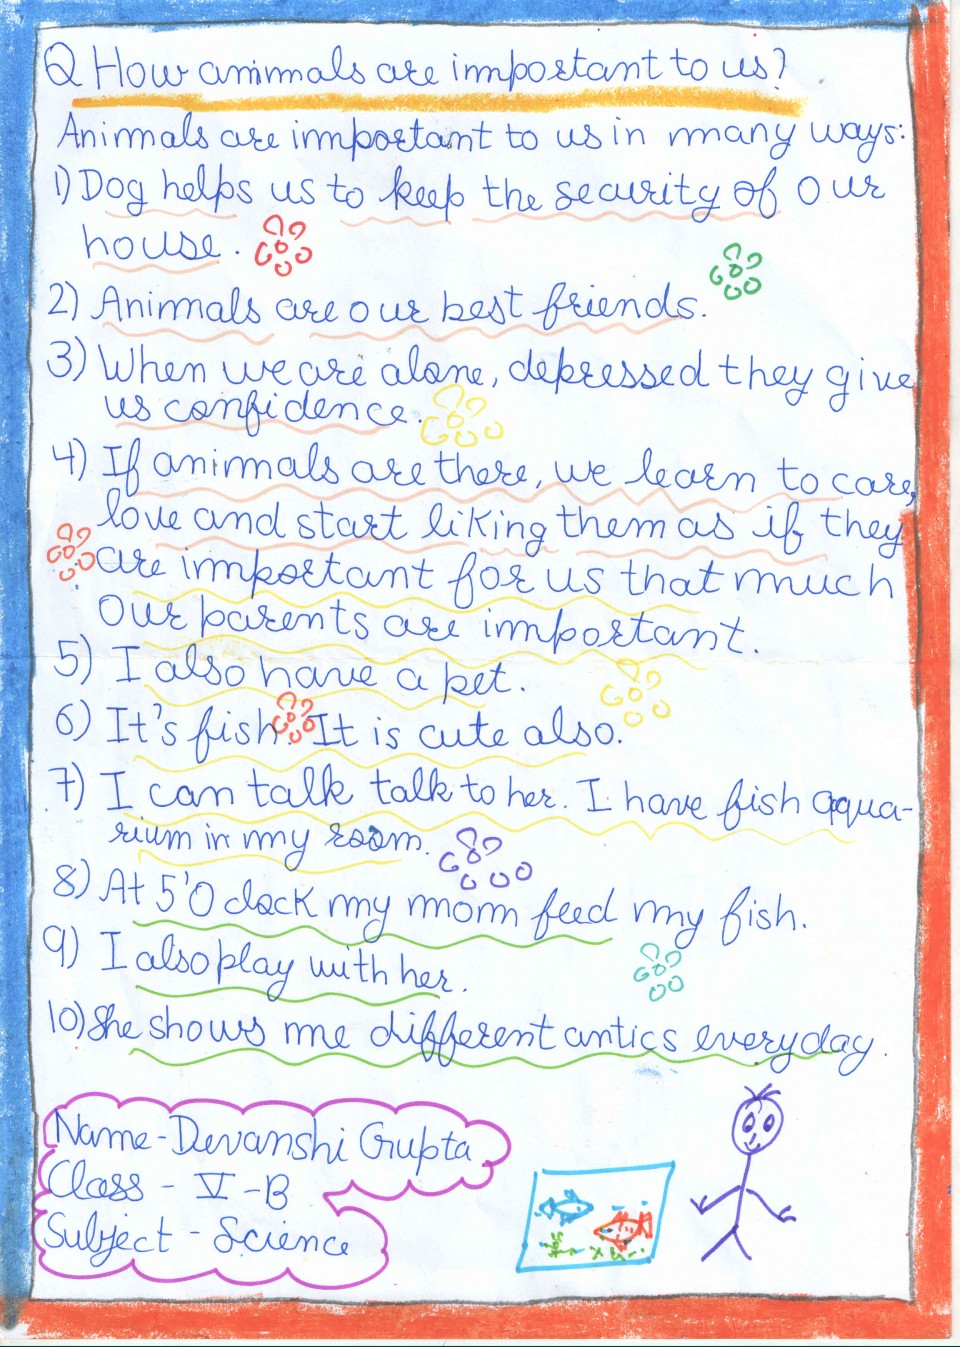 Q How animals are important to us?
Animals are important to us in many ways:
1) Dog helps us to keep the security of our
house.
2) Animals are our best friends.
3) When we are alone, depressed they give
us confidence.
4) If animals are there, we learn to care,
love and start liking them as if they
are important for us that much
Our parents are important.
5) I also have a pet.
6) It's fish. It is cute also.
7) I can talk talk to her. I have fish aqua-
rium in my room.
8) At 5'O clock my mom feed my fish.
9) I also play with her.
10) She shows me different antics everyday.
Name - Devanshi Gupta
Class - V - B
Subject - Science